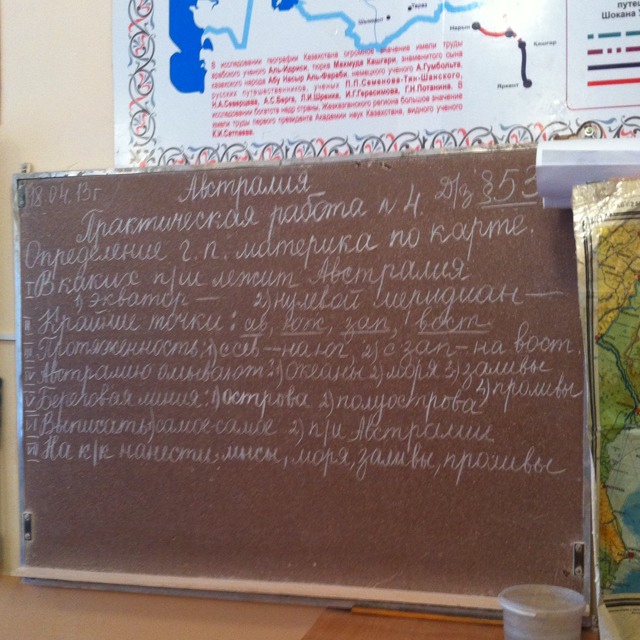 путе
Шокана
Шымкент
Тараз
Нарын
Кашгар
Яркент
В исследовании географии Казахстана огромное значение имели труды
арабского ученого Аль-Идриси, тюрка Махмуда Кашгари, знаменитого сына
казахского народа Абу Насыр Аль-Фараби, немецкого ученого А.Гумбольта,
русских путешественников, ученых П.П.Семенова-Тян-Шанского,
Н.А.Северцева, А.С.Берга, Л.И.Шренке, И.Г.Герасимова, Г.Н.Потанина. В
исследовании богатств недр страны, Жезказганского региона большое значение
имели труды первого президента Академии наук Казахстана, видного ученого
К.И.Сатпаева.
18.04.13г Австралия Д/з §53
Практическая работа №4.
Определение г.п. материка по карте.
I В каких п/ш лежит Австралия
1) Экватор — 2) нулевой меридиан —
II Крайние точки: сев, юж, зап, вост
III Протяженность: 1) с сев — на юг, 2) с зап — на вост.
IV Австралию омывают: 1) океаны 2) моря 3) заливы
4) проливы
V Береговая линия: 1) острова 2) полуострова
VI Выписать 1) самое самое 2) п/и Австралии
VII На к/к нанести: мысы, моря, заливы, проливы